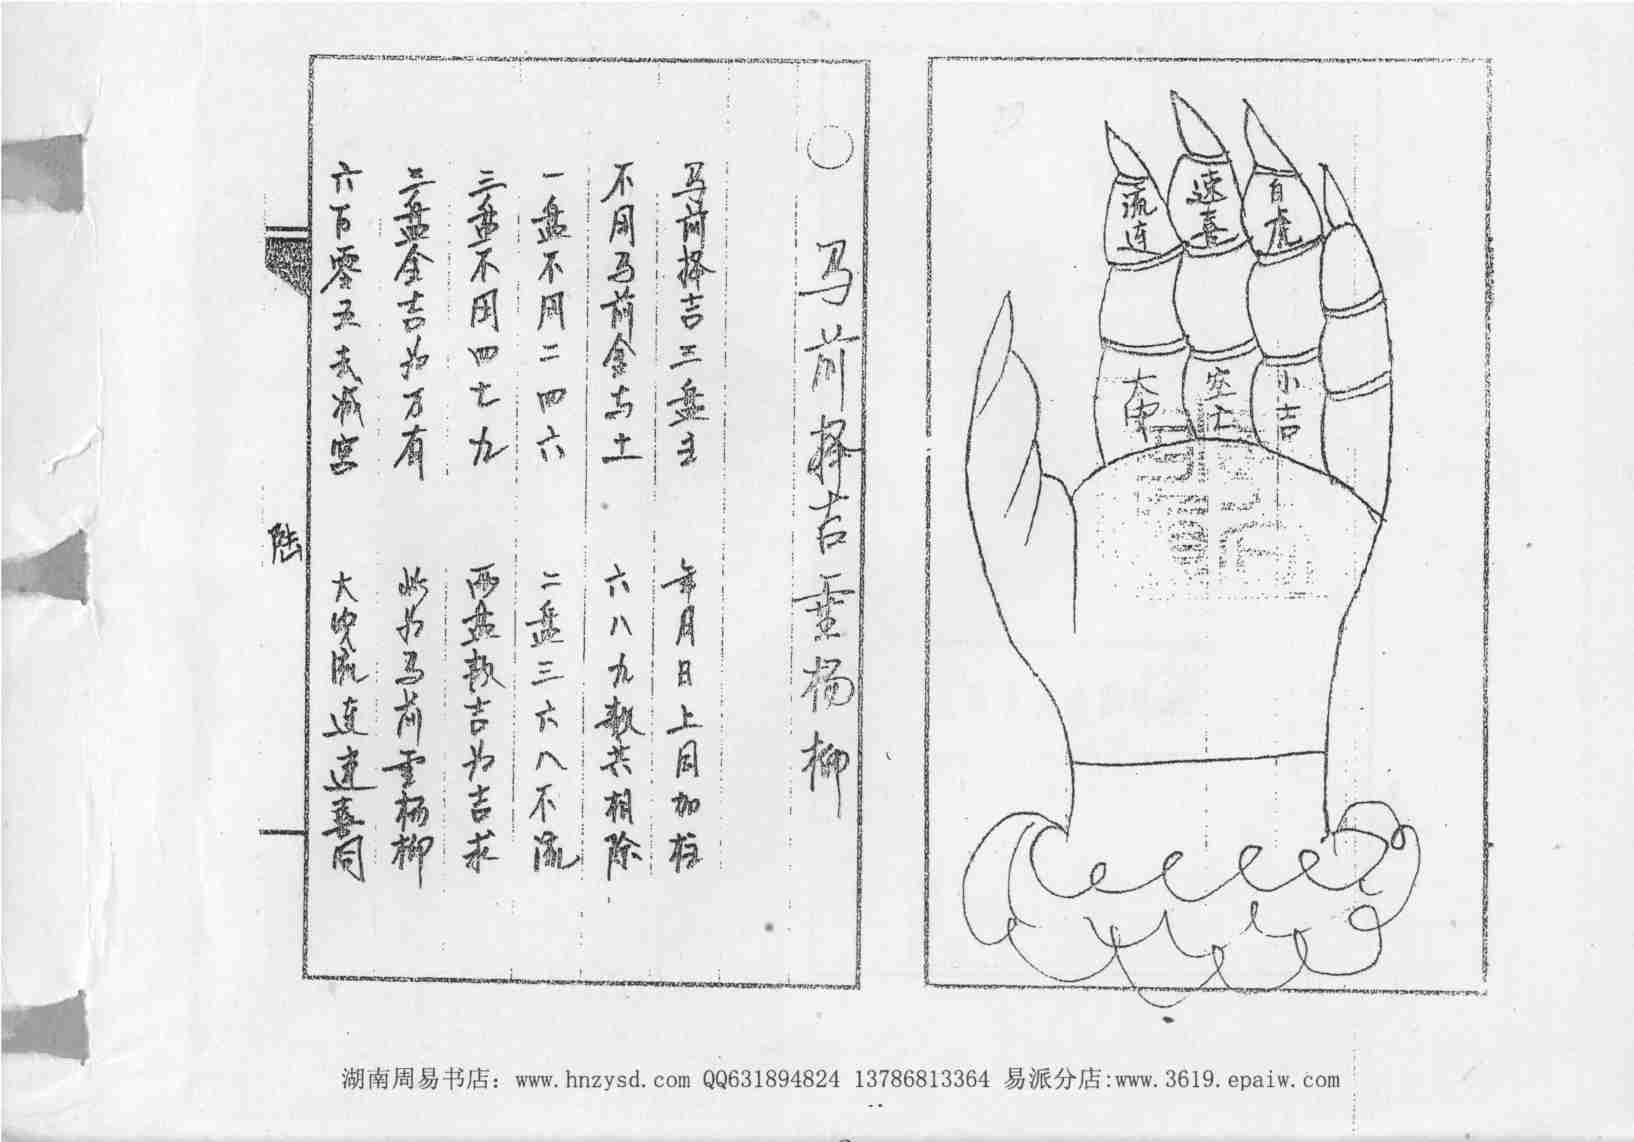 流连
速喜
白虎
大安
空亡
小吉
○马前择吉重杨柳
马前择吉三盘主 年月日上同加柱
不用马前金与土 六八九数共相除
一盘不用二四六 二盘三六八不流
三盘不用四七九 两盘数吉为吉求
三盘全吉为万有 此为马前重杨柳
六百零五去减宫 大安流连速喜同
陆
湖南周易书店：www.hnzysd.com QQ631894824 13786813364 易派分店:www.3619.epaiw.com